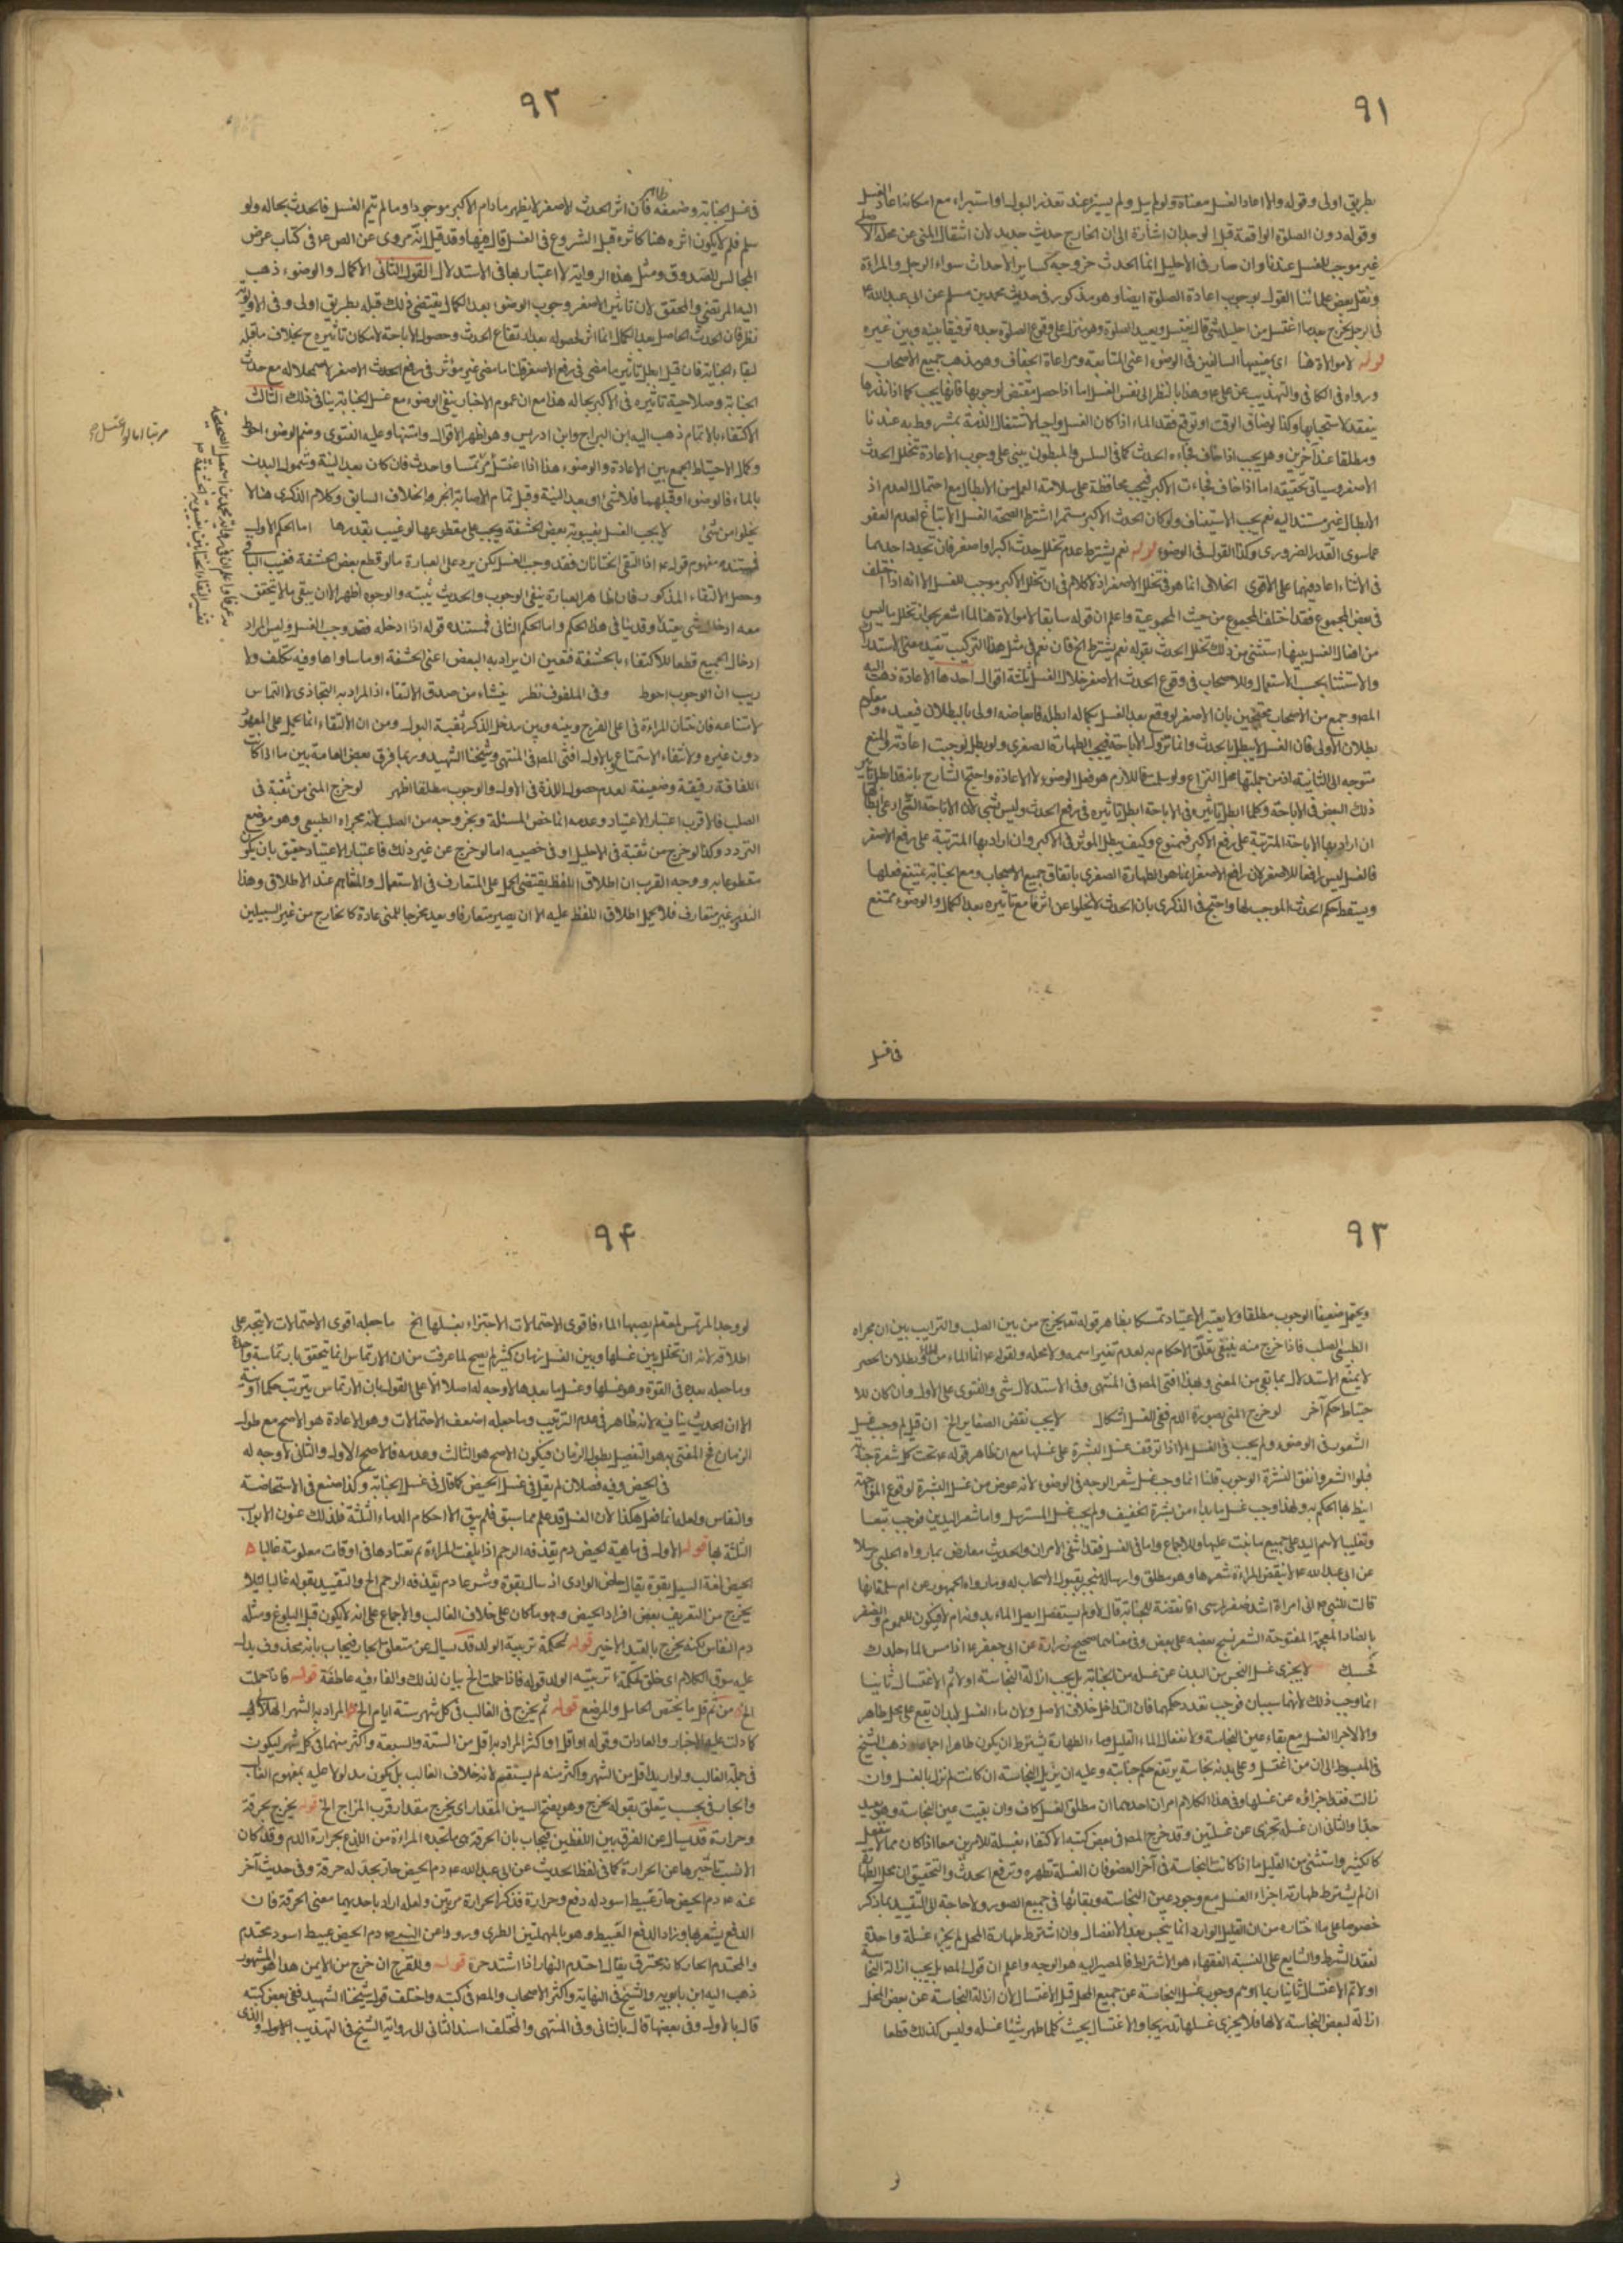 ٩١
بطريق اولى وقوله والا اعاد الغسل معناه ولو لم يبل ولم يستبرء عند تعذر البول او استبراء مع امكانه اعاد الغسل
وقوله دون الصلوة الواقعة قبل الوجدان اشارة الى ان الخارج حدث جديد لان انتقال المنى عن محله الاصلى
غير موجب للغسل عندنا وان صار فى الاحليل انما الحدث خروجه كساير الاحداث سواء الرجل والمراة
ونقل بعض علمائنا القول بوجوب اعادة الصلوة ايضا وهو مذكور فى حديث محمد بن مسلم عن ابى عبد الله ع
فى الرجل يخرج بعد ما اغتسل من احليله شئ قال يغتسل ويعيد الصلوة وهو منزل على وقوع الصلوة بعده توفيقا بينه وبين غيره
قوله لا موالاة هنا اى بمعنييها السالفين فى الوضوء اعنى المتابعة ومراعاة الجفاف وهو مذهب جميع الاصحاب
ورواه فى الكافى والتهذيب عن على ع وهذا بالنظر الى نفس الغسل اما اذا حصل مقتض لوجوبها فانها يجب كما اذا نذرها
ينعقد لاستحبابها وكذا لو ضاق الوقت او توقع فقد الماء اذا كان الغسل واجبا لاشتغال الذمة بمشروط به عندنا
ومطلقا عند آخرين وهل يجب اذا خاف فجأة الحدث كما فى السلس والمبطون يبنى على وجوب الاعادة بتخلل الحدث
الاصغر وسياتى تحقيقه اما اذا خاف فجاءت الاكبر فيجب محافظة على سلامة العمل من الابطال مع احتمال العدم اذ
الابطال غير مستند اليه نعم يجب الاستيناف ولو كان الحدث الاكبر مستمرا اشترط لصحة الغسل الاتباع لعدم العفو
عما سوى القدر الضرورى وكذا القول فى الوضوء قوله نعم يشترط عدم تخلل حدث اكبر او اصغر فان تجدد احدهما
فى الاثناء اعاد فيهما على الاقوى الخلاف انما هو فى تخلل الاصغر اذ لا كلام فى ان تخلل الاكبر موجب للغسل لانه اذا اختلف
فى بعض المجموع فقد اختلف المجموع من حيث المجموعية واعلم ان قوله سابقا لا موالاة هنا لما اشعر بجواز تخلل ما ليس
من افعال الغسل بينها استثنى من ذلك تخلل الحدث بقوله نعم يشترط الخ فان نعم فى مثل هذا التركيب تفيد معنى الاستدراك
والاستثناء بحسب الاستعمال وللاصحاب فى وقوع الحدث الاصغر خلال الغسل ثلثة اقوال احدها الاعادة ذهب اليه
المصر وجمع من الاصحاب محتجين بان الاصغر لو وقع بعد الغسل بكماله ابطله فابعاضه اولى بالبطلان فيعيده ومعلوم
بطلان الاولى فان الغسل لا يبطل بالحدث وانما تزول الاباحة فيجب الطهارة الصغرى ولو بطل لوجبت اعادته والمنع
متوجه الى الثانية اذ من جملتها محل النزاع ولو سلمت فاللازم هو فعل الوضوء لا الاعادة واحتج الشارح بانه قد ابطل تاثير
ذلك البعض فى الاباحة وكلما ابطل تاثيره فى الاباحة ابطل تاثيره فى رفع الحدث وليس بشئ لان الاباحة التى ادعى ابطالها
ان اراد بها الاباحة المترتبة على رفع الاكبر فممنوع وكيف يبطل المؤثر فى الاكبر وان اراد بها المترتبة على رفع الاصغر
فالغسل ليس رافعا للاصغر لان رافع الاصغر انما هو الطهارة الصغرى باتفاق جميع الاصحاب ومع الجنابة يمتنع فعلها
ويسقط حكم الحدث الموجب لها واحتج فى الذكرى بان الحدث لا يخلوا عن اثر ما مع تاثيره بعد الكمال والوضوء ممتنع
فى غسل
٩٢
فى غسل الجنابة وضعفه ظاهر فان اثر الحدث الاصغر لا يظهر مادام الاكبر موجودا وما لم يتم الغسل فالحدث بحاله ولو
سلم فلم لا يكون اثره هنا كاثره قبل الشروع فى الغسل قال فيها وقد قيل انه مروى عن الص ع فى كتاب عرض
المجالس للصدوق ومثل هذه الرواية لا اعتبار بها فى الاستدلال القول الثانى الاكمال والوضوء ذهب
اليه المرتضى والمحقق لان تاثير الاصغر وجوب الوضوء بعد الكمال يقتضى ذلك قبله بطريق اولى وفى الاولوية
نظر فان الحدث الحاصل بعد الكمال انما اثر لحصوله بعد ارتفاع الحدث وحصول الاباحة لامكان تاثيره ح بخلاف ما قبله
لبقاء الجنابة فان قيل ابطل تاثير ما مضى فى رفع الاصغر قلنا ما مضى غير مؤثر فى رفع الحدث الاصغر لاضمحلاله مع حدث
الجنابة وصلاحية تاثيره فى الاكبر بحاله هذا مع ان عموم الاخبار بنفى الوضوء مع غسل الجنابة ينافى ذلك الثالث
الاكتفاء بالاتمام ذهب اليه ابن البراج وابن ادريس وهو اظهر الاقوال وامتنها وعليه الفتوى وضم الوضوء احوط
وكمال الاحتياط الجمع بين الاعادة والوضوء هذا اذا اغتسل مرتمسا واحدث فان كان بعد النية وشمول البدن
بالماء فالوضوء او قبلهما فلا شئ او بعد النية وقبل تمام الاصابة انجر والخلاف السابق وكلام الذكرى هنا لا
يخلوا من شئ لا يجب الغسل بغيبوبة بعض الحشفة ويجب على مقطوعها لو غيب بقدرها اما الحكم الاول
فمستنده مفهوم قوله ع اذا التقى الختانان فقد وجب الغسل لكن يرد على العبارة ما لو قطع بعض الحشفة فغيب الباقى
وحصل الالتقاء المذكور فان ظاهر العبارة ينفى الوجوب والحديث يثبته والوجوه اظهر الا ان يبقى ما لا يتحقق
معه ادخال شئ عندنا وقد بينا فى هذا الحكم واما الحكم الثانى فمستنده قوله اذا ادخله فقد وجب الغسل وليس المراد
ادخال الجميع قطعا للاكتفاء بالحشفة فتعين ان يراد به البعض اعنى الحشفة او ما ساواها وفيه تكلف ولا
ريب ان الوجوب احوط وفى الملفوف نظر ينشاء من صدق الالتقاء اذ المراد به التحاذى لا التماس
لامتناعه فان ختان المراة فى اعلى الفرج وبينه وبين مدخل الذكر ثقبة البول ومن ان الالتقاء انما يحمل على المعهود
دون غيره ولانتفاء الاستمتاع وبالاول افتى المصر فى المنتهى وشيخنا الشهيد وربما فرق بعض العامة بين ما اذا كانت
اللفافة رقيقة وضعيفة لعدم حصول اللذة فى الاول والوجوب مطلقا اظهر لو خرج المنى من ثقبة فى
الصلب فالاقرب اعتبار الاعتياد وعدمه انما خص المسئلة وبخروجه من الصلب لانه مجراه الطبيعى وهو موضع
التردد وكذا لو خرج من ثقبة فى الاحليل او فى خصييه اما لو خرج عن غير ذلك فاعتبار الاعتياد حقيق بان يكون
مقطوعا به ووجه القرب ان اطلاق اللفظ يقتضى الحمل على المتعارف فى الاستعمال والمتفاهم عند الاطلاق وهذا
النادر غير متعارف فلا يحمل اطلاق اللفظ عليه الا ان يصير متعارفا ويعد مخرجا للمنى عادة كالخارج من غير السبيلين
مرتبا اما لو اغتسل
٩٣
ويحتمل ضعيفا الوجوب مطلقا ولا يعتبر الاعتياد تمسكا بظاهر قوله تعه يخرج من بين الصلب والترايب بين ان مجراه
الطبيعى الصلب فاذا خرج منه ينبغى تعلق الاحكام به لعدم تغير اسمه ولا محله ولقوله ع انما الماء من الماء وبطلان الحصر
لا يمنع الاستدلال بما بقى من المعنى وبهذا افتى المصر فى المنتهى وفى الاستدلال شئ والفتوى على الاول وان كان للا
حتياط حكم آخر لو خرج المنى بصورة الدم ففى الغسل اشكال لا يجب نقض الضفاير الخ ان قيل لم وجب غسل
الشعور فى الوضوء ولم يجب فى الغسل الا اذا توقف غسل البشرة على غسلها مع ان ظاهر قوله ع تحت كل شعرة جنابة
فبلوا الشعر وانقوا البشرة الوجوب قلنا انما وجب غسل شعر الوجه فى الوضوء لانه عوض من غسل البشرة لوقوع المواجهة
انيط بها الحكم به ولهذا وجب غسل ما بداء من بشرة الخفيف ولم يجب غسل المسترسل واما شعر اليدين فوجب تبعا
وتغليبا لاسم اليد على جميع ما نبت عليها وللاجماع واما فى الغسل فقد انتفى الامران والحديث معارض بما رواه الحلبى مرسلا
عن ابى عبد الله ع لا تنقض المراة شعرها وهو مطلق وارساله منجبر بقبول الاصحاب له وما رواه الجمهور عن ام سلمة انها
قالت للنبى ص انى امراة اشد ضفر راسى افانقضه للجنابة قال لا ولو لم يستفصل ايصل الماء بدونه ام لا فيكون للعموم والضفر
بالضاد المعجمة المفتوحة الشعر نسج بعضه على بعض وفى معناهما صحيح زرارة عن ابى جعفر ع اذا مس الماء جلدك
فحسبك لا يجزى غسل النجس من البدن عن غسله من الجنابة بل يجب ازالة النجاسة اولا ثم الاغتسال ثانيا
انما وجب ذلك لانهما سببان فوجب تعدد حكمهما فان التداخل خلاف الاصل ولان ماء الغسل لابد ان يقع على محل طاهر
والا لاجزاء الغسل مع بقاء عين النجاسة ولانفعال الماء القليل وماء الطهارة يشترط ان يكون طاهرا اجماعا وذهب الشيخ
فى المبسوط الى ان من اغتسل وعلى بدنه نجاسة يرتفع حكم جنابته وعليه ان يزيل النجاسة ان كانت لم تزل بالغسل وان
زالت فقد اجزاؤه عن غسلها وفى هذا الكلام امران احدهما ان مطلق الغسل كاف وان بقيت عين النجاسة وهو بعيد
جدا والثانى ان غسله تجزى عن غسلتين وقد خرج المصر فى بعض كتبه الاكتفاء بغسله للامرين معا اذا كان مما لا ينفعل
كالكثير واستثنى من القليل ما اذا كانت النجاسة فى آخر العضو فان الغسلة تطهره وترفع الحدث والتحقيق ان محل الطهارة
ان لم يشترط طهارته اجزاء الغسل مع وجود عين النجاسة وبقائها فى جميع الصور ولا حاجة الى التقييد بما ذكر
خصوصا على ما اختاره من ان القليل الوارد انما ينجس بعد الانفصال وان اشترط طهارة المحل لم يجز غسلة واحدة
لفقد الشرط والشايع على السنة الفقهاء هو الاشتراط فالمصير اليه هو الوجه واعلم ان قول المصر بل يجب ازالة النجاسة
اولا ثم الاغتسال ثانيا ربما اوهم وجوب غسل النجاسة عن جميع المحل قبل الاغتسال لان ازالة النجاسة عن بعض المحل
ازالة لبعض النجاسة لا لها فلا يجزى غسلها تدريجا والاغتسال بحيث كلما طهر شيئا غسله وليس كذلك قطعا
٩٤
لو وجد المرتمس لمعة لم يصبها الماء فاقوى الاحتمالات الاجتزاء بغسلها الخ ما جعله اقوى الاحتمالات لا يتجه على
اطلاقه لانه ان تخلل بين غسلها وبين الغسل زمان كثير لم يصح لما عرفت من ان الارتماس انما يتحقق بارتماسة واحدة
وما جعله بعده فى القوة وهو غسلها وغسل ما بعدها لا وجه له اصلا الا على القول بان الارتماس يترتب حكما او نية
الا ان الحديث ينافيه لانه ظاهر فى عدم الترتيب وما جعله اضعف الاحتمالات وهو الاعادة هو الاصح مع طول
الزمان فح المفتى به هو التفصيل بطول الزمان فيكون الاصح هو الثالث وعدمه فالاصح الاول والثانى لا وجه له
فى الحيض وفيه فصلان لم يقل فى غسل الحيض كما قال فى غسل الجنابة وكذا صنع فى الاستحاضة
والنفاس ولعله انما فعل هكذا لان الغسل قد علم مما سبق فلم يبق الا احكام الدماء الثلثة فلذلك عنون الابواب
الثلثة بها قوله الاول فى ماهية الحيض دم يقذفه الرحم اذا بلغت المراة ثم تعتادها فى اوقات معلومة غالبا
الحيض لغة السيل بقوة يقال حاض الوادى اذ سال بقوة وشرعا دم يقذفه الرحم الخ والتقييد بقوله غالبا لئلا
يخرج من التعريف بعض افراد الحيض وهو ما كان على خلاف الغالب والاجماع على انه لا يكون قبل البلوغ ومثله
دم النفاس لكنه يخرج بالقيد الاخير قوله لحكمة تربية الولد قد يسال عن متعلق الجار فيجاب بانه محذوف يدل
عليه سوق الكلام اى خلق لحكمة تربيته الولد قوله فاذا حملت الخ بيان لذلك والفاء فيه عاطفة قوله فاذا خلت
الخ من ثم قل ما يختص الحامل والمرضع قوله ثم يخرج فى الغالب فى كل شهر ستة ايام الخ المراد بالشهر الهلالى
كما دلت عليه الاخبار والعادات وقوله او اقل او اكثر المراد به اقل من الستة والسبعة واكثر منهما فى كل شهر ليكون
فى جملة الغالب ولو اريد اقل من الشهر واكثر منه لم يستقيم لانه خلاف الغالب بل يكون مدلولا عليه بمفهوم الغالب
والجار فى بحسب يتعلق بقوله يخرج وهو بفتح السين المقدار اى يخرج مقدار قرب المزاج الخ قوله يخرج بحرقة
وحرارة قد يسال عن الفرق بين اللفظين فيجاب بان الحرقة هى ما تجده المراة من اللذع بحرارة الدم وقد كان
الانسب تاخيرها عن الحرارة كما فى لفظ الحديث عن ابى عبد الله ع دم الحيض حار تجد له حرقة وفى حديث آخر
عنه ع دم الحيض حار عبيط اسود له دفع وحرارة فذكر الحرارة مرتين ولعله اراد باحديهما معنى الحرقة فان
الدفع يشعر بها وزاد الدفع العبيط وهو بالمهملتين الطرى ورووا عن النبى ص دم الحيض عبيط اسود محتدم
والمحتدم الحار كانه يحترق يقال احتدم النهار اذا اشتد حره قوله وللقرح ان خرج من الايمن هذا هو المشهور
ذهب اليه ابن بابويه والشيخ فى النهاية واكثر الاصحاب والمصر فى كتبه واختلف قول شيخنا الشهيد ففى بعض كتبه
قال بالاول وفى بعضها قال بالثانى وفى المنتهى والمختلف اسند الثانى الى رواية الشيخ فى التهذيب الاول والذى